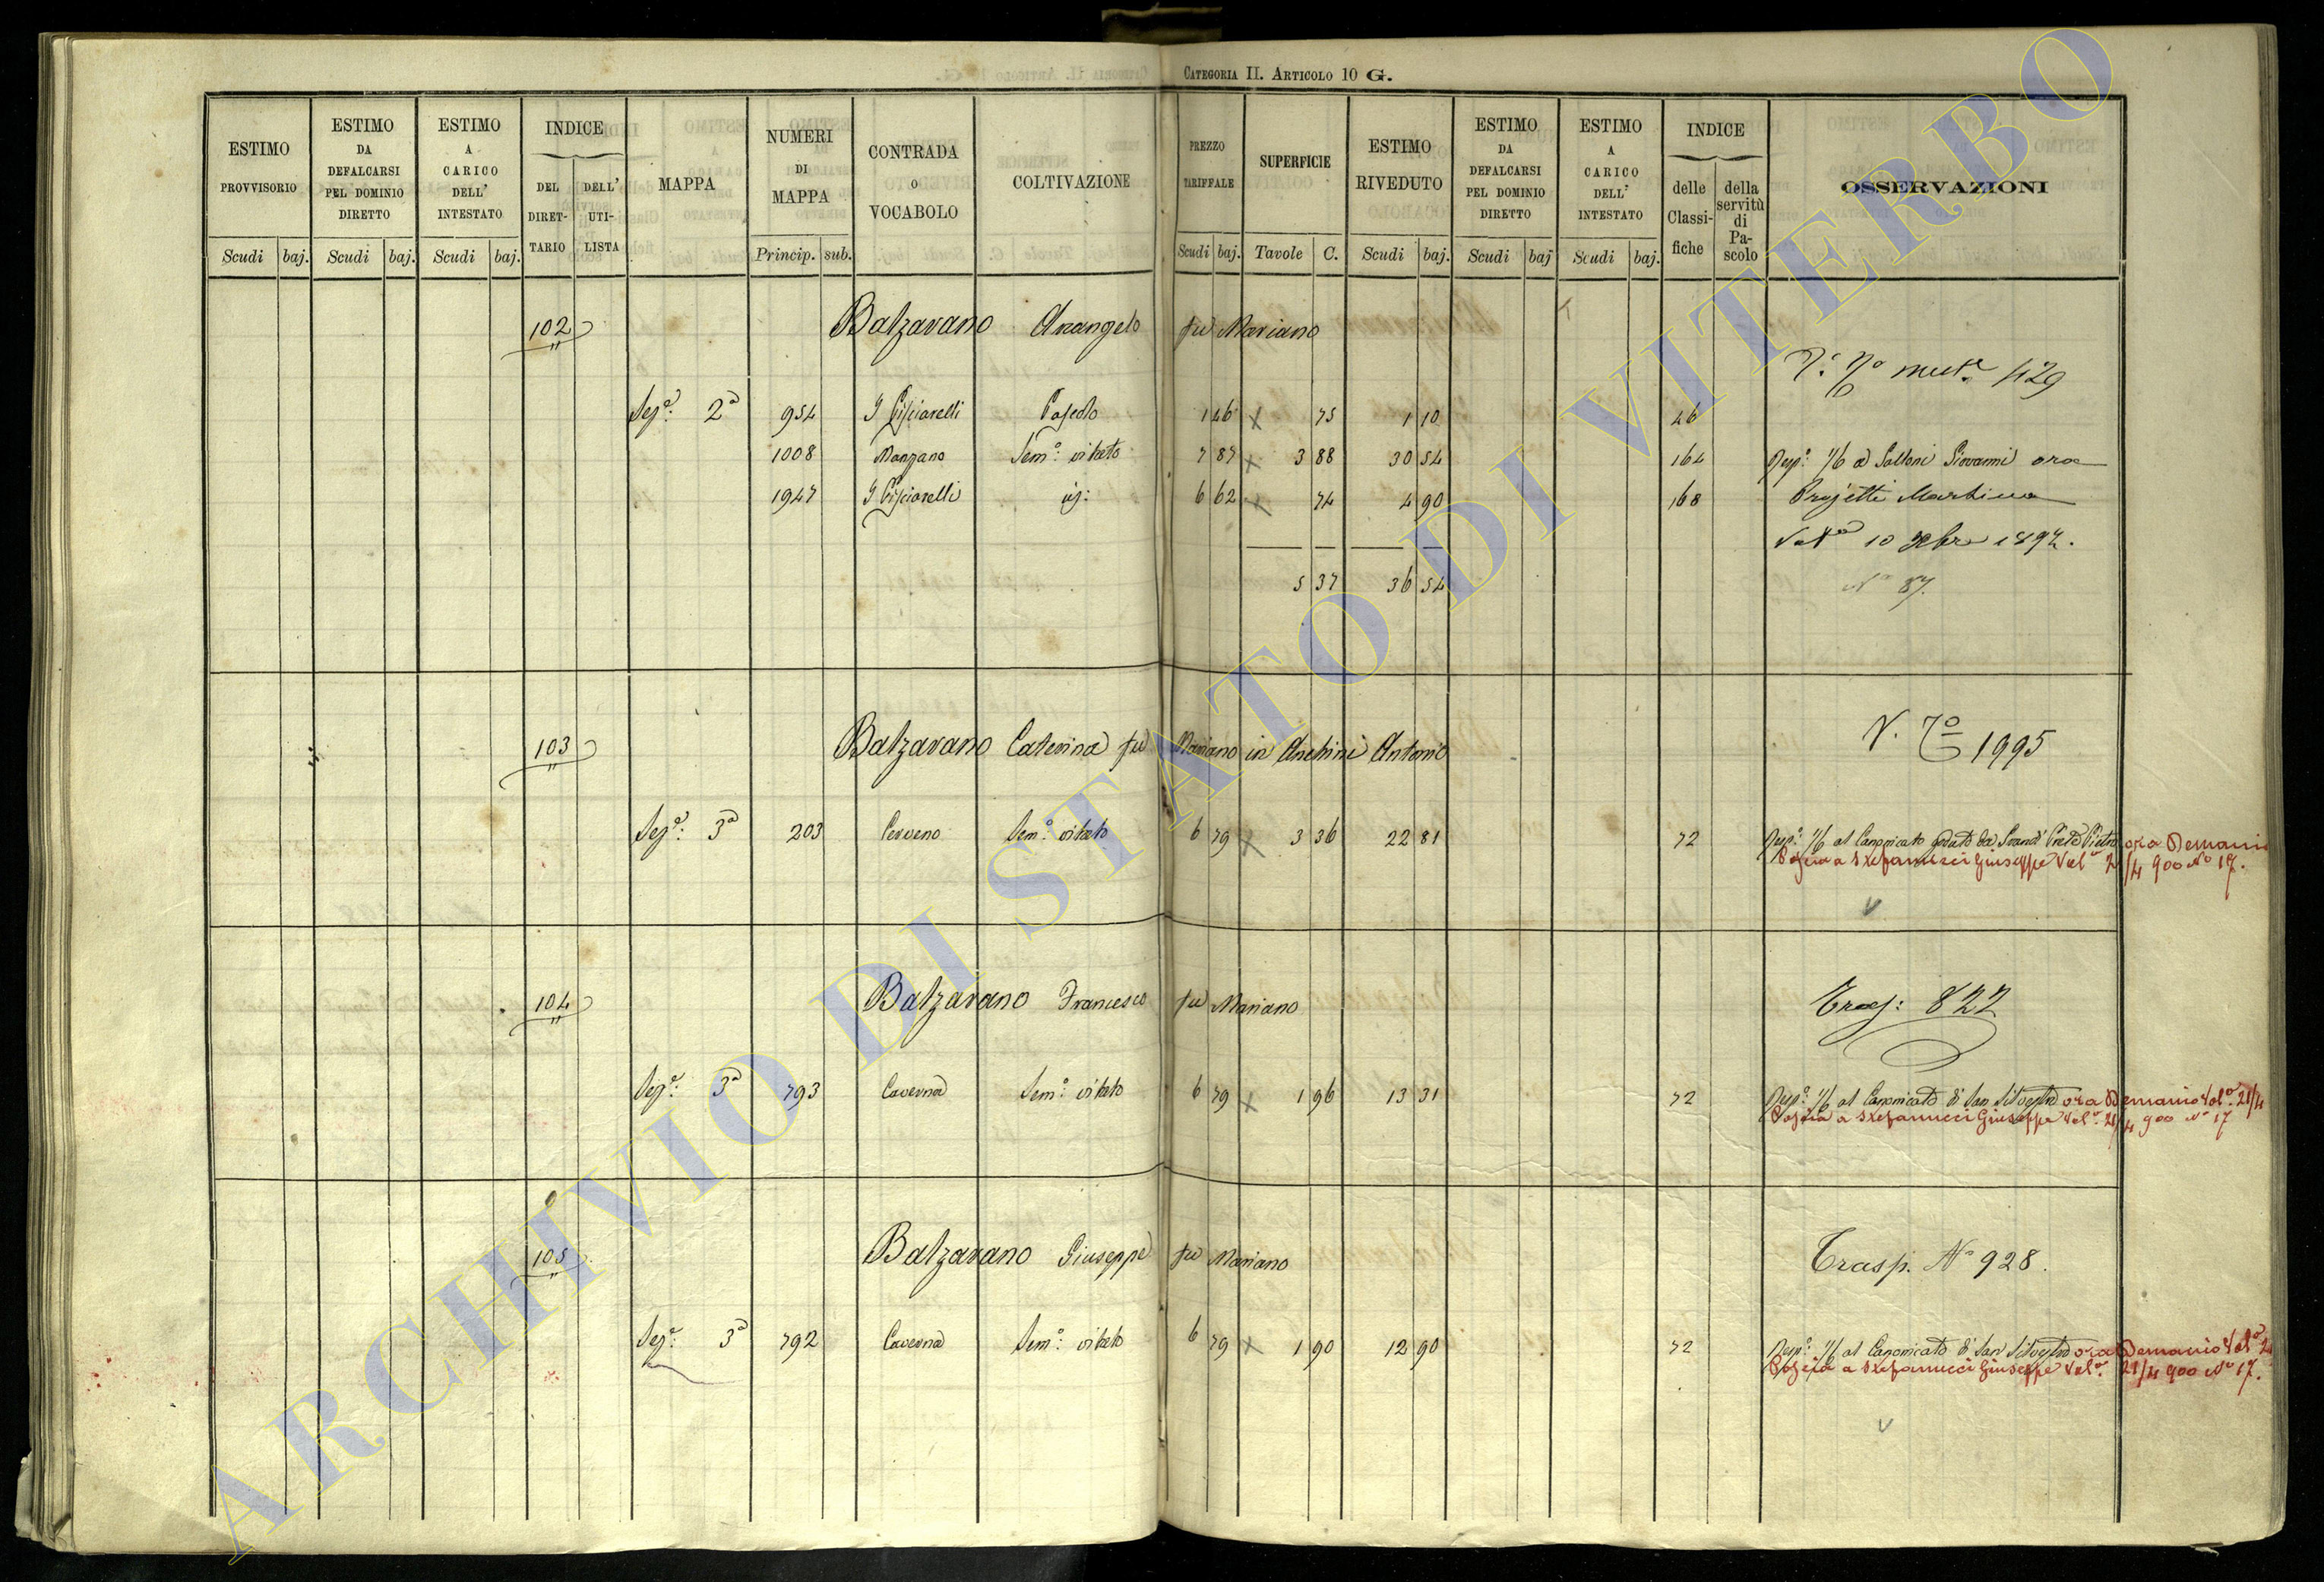 CATEGORIA II. ARTICOLO 10 G.
ESTIMO PROVVISORIO
ESTIMO DA DEFALCARSI PEL DOMINIO DIRETTO
ESTIMO A CARICO DELL' INTESTATO
INDICE
DEL DIRET-TARIO
DELL' UTI-LISTA
MAPPA
NUMERI DI MAPPA
CONTRADA O VOCABOLO
COLTIVAZIONE
PREZZO TARIFFALE
SUPERFICIE
ESTIMO RIVEDUTO
ESTIMO DA DEFALCARSI PEL DOMINIO DIRETTO
ESTIMO A CARICO DELL' INTESTATO
INDICE
delle Classi-fiche
della servitù di Pa-scolo
OSSERVAZIONI
Scudi baj. Scudi baj. Scudi baj. Princip. sub. Scudi baj. Tavole C. Scudi baj. Scudi baj Scudi baj.
102 Balzarano Arcangelo fu Mariano
mut.e 429
Sez.e: 2a 954 Pascolo 1 46 75 1 10 46
1008 Manzano Sem.o: vitato 7 87 3 88 30 54 164 Resp.e 1/6 a Saltoni Giovanni ora
1947 vig: 6 62 74 4 90 168 Projetti Martino
10 1897.
5 37 36 54 No 87.
103 Balzarano Caterina fu Mariano in Anchini Antonio
V. 70 1995
Sez.e: 3a 203 Cerveno Sem.o: vitato 6 79 3 36 22 81 72 Resp.e 1/6 al Canonicato goduto da Pietro ora Demanio
Poscia a Stefanucci Giuseppe Vol.a 21/4 900 No 17.
104 Balzarano Francesco fu Mariano
Trasp: 822
Sez.e: 3a 793 Caverna Sem.o: vitato 6 79 1 96 13 31 72 Resp.e 1/6 al Canonicato di San Silvestro ora Demanio Vol.a 21/4
Poscia a Stefanucci Giuseppe Vol.a 21/4 900 No 17
105 Balzarano Giuseppe fu Mariano
Trasp. No 928.
Sez.e: 3a 792 Caverna Sem.o: vitato 6 79 1 90 12 90 72 Resp.e 1/6 al Canonicato di San Silvestro ora Demanio Vol.a 2
Poscia a Stefanucci Giuseppe Vol.a 21/4 900 No 17.
ARCHIVIO DI STATO DI VITERBO